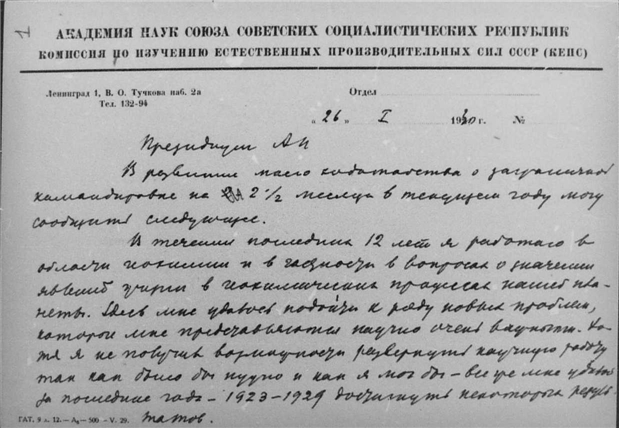 1
АКАДЕМИЯ НАУК СОЮЗА СОВЕТСКИХ СОЦИАЛИСТИЧЕСКИХ РЕСПУБЛИК
КОМИССИЯ ПО ИЗУЧЕНИЮ ЕСТЕСТВЕННЫХ ПРОИЗВОДИТЕЛЬНЫХ СИЛ СССР (КЕПС)
Ленинград 1, В. О. Тучкова наб. 2а
Тел. 132-94
Отдел
„ 26 „ I 1930 г. №
Президиум АН
В развитие моего ходатайства о заграничной
командировке на 2 1/2 месяца в текущем году могу
сообщить следующее.
В течении последних 12 лет я работаю в
области геохимии и в частности в вопросах о значении
явлений жизни в геохимических процессах нашей пла-
неты. Здесь мне удалось подойти к ряду новых проблем,
которые мне представляются научно очень важными. Хо-
тя я не получил возможности развернуть научную работу
так как было бы нужно и как я мог бы - все же мне удалось
за последние года - 1923-1929 достигнуть некоторых резуль-
татов.
ГАТ. 9 з. 12.— А₅— 500 — V. 29.